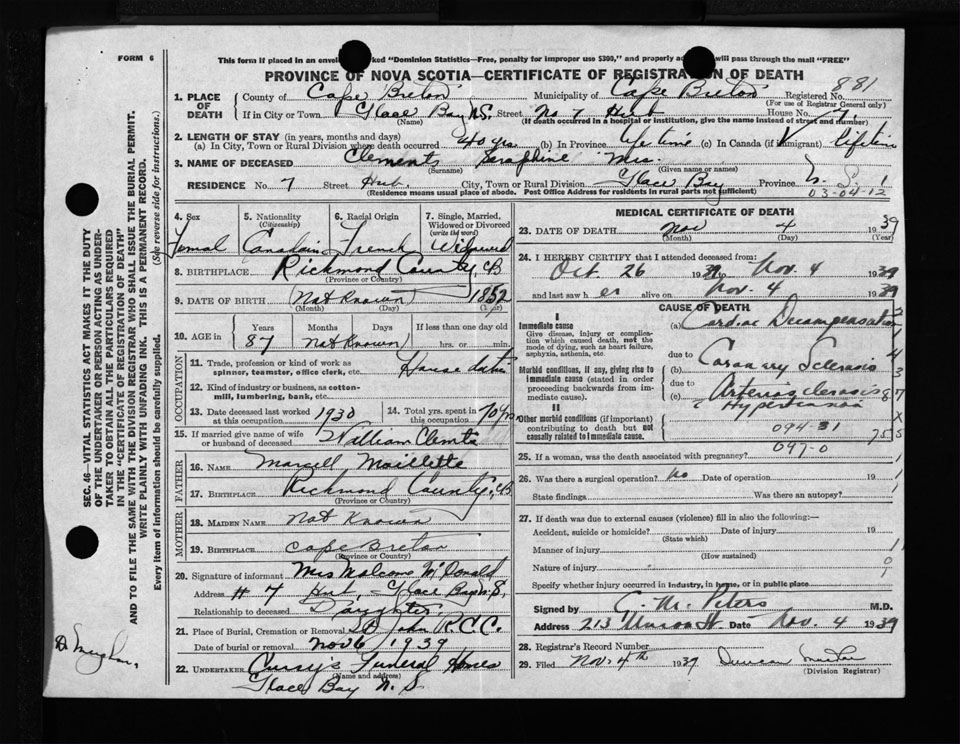 FORM 6
This form if placed in an envelope marked "Dominion Statistics—Free, penalty for improper use $300," and properly will pass through the mail "FREE"
PROVINCE OF NOVA SCOTIA—CERTIFICATE OF REGISTRATION OF DEATH
881
1. PLACE OF DEATH County of Cape Breton Municipality of Cape Breton Registered No.
(For use of Registrar General only)
If in City or Town Glace Bay N.S. Street No 7 Hub House No. 7.
(If death occurred in a hospital or institution, give the name instead of street and number)
2. LENGTH OF STAY (in years, months and days)
(a) In City, Town or Rural Division where death occurred 40 yrs. (b) In Province life time (c) In Canada (if immigrant)
3. NAME OF DECEASED Clements Seraphine Mrs.
(Surname) (Given name or names)
RESIDENCE No. 7 Street Hub. City, Town or Rural Division Glace Bay Province N. S. 1
(Residence means usual place of abode. Post Office Address for residents in rural parts not sufficient) 03-04-12
4. Sex 5. Nationality (Citizenship) 6. Racial Origin 7. Single, Married, Widowed or Divorced (write the word)
Femal Canadain French Widowed
8. BIRTHPLACE Richmond County, CB
(Province or Country)
9. DATE OF BIRTH (Not Known) 1852
(Month) (Day) (Year)
10. AGE in Years Months Days If less than one day old
87 Not Known hrs. or min.
OCCUPATION
11. Trade, profession or kind of work as spinner, teamster, office clerk, etc.
12. Kind of industry or business, as cotton-mill, lumbering, bank, etc.
13. Date deceased last worked at this occupation 1930 14. Total yrs. spent in this occupation 70 yrs
15. If married give name of wife or husband of deceased William
FATHER
16. NAME Marcell Maillette
17. BIRTHPLACE Richmond County, CB
(Province or Country)
MOTHER
18. MAIDEN NAME Not Known
19. BIRTHPLACE Cape Breton
(Province or Country)
20. Signature of informant Mrs Malcome McDonald
Address # 7 Hub, Glace Bay N.S,
Relationship to deceased Daughter
21. Place of Burial, Cremation or Removal St John R.C.C.
Date of burial or removal Nov 6 1939
22. UNDERTAKER Funeral Homes
(Name and address)
Glace Bay N. S
MEDICAL CERTIFICATE OF DEATH
23. DATE OF DEATH Nov 4 1939
(Month) (Day) (Year)
24. I HEREBY CERTIFY that I attended deceased from:
Oct. 26 1939 to Nov. 4 1939
and last saw her alive on Nov. 4 1939
CAUSE OF DEATH
I
Immediate cause
Give disease, injury or complication which caused death, not the mode of dying, such as heart failure, asphyxia, asthenia, etc
(a) Cardiac Decompensation
due to
(b) Coronary Sclerosis
Morbid conditions, if any, giving rise to immediate cause (stated in order proceeding backwards from immediate cause).
due to
(c) Arteriosclerosis
& Hypertension
II
Other morbid conditions (if important) contributing to death but not causally related to immediate cause.
094-31
097-0
25. If a woman, was the death associated with pregnancy?
26. Was there a surgical operation? No Date of operation 19
State findings Was there an autopsy?
27. If death was due to external causes (violence) fill in also the following:—
Accident, suicide or homicide? Date of injury 19
(State which)
Manner of injury
(How sustained)
Nature of injury
Specify whether injury occurred in industry, in home, or in public place
Signed by G. M. Peters M.D.
Address 213 Union St. Date Nov. 4 1939
28. Registrar's Record Number
29. Filed Nov. 4th 1939 Duncan
(Division Registrar)
SEC. 46—VITAL STATISTICS ACT MAKES IT THE DUTY
OF THE UNDERTAKER OR PERSON ACTING AS UNDER-
TAKER TO OBTAIN ALL THE PARTICULARS REQUIRED
IN THE "CERTIFICATE OF REGISTRATION OF DEATH"
AND TO FILE THE SAME WITH THE DIVISION REGISTRAR WHO SHALL ISSUE THE BURIAL PERMIT.
WRITE PLAINLY WITH UNFADING INK. THIS IS A PERMANENT RECORD.
Every item of information should be carefully supplied. (See reverse side for instructions.)